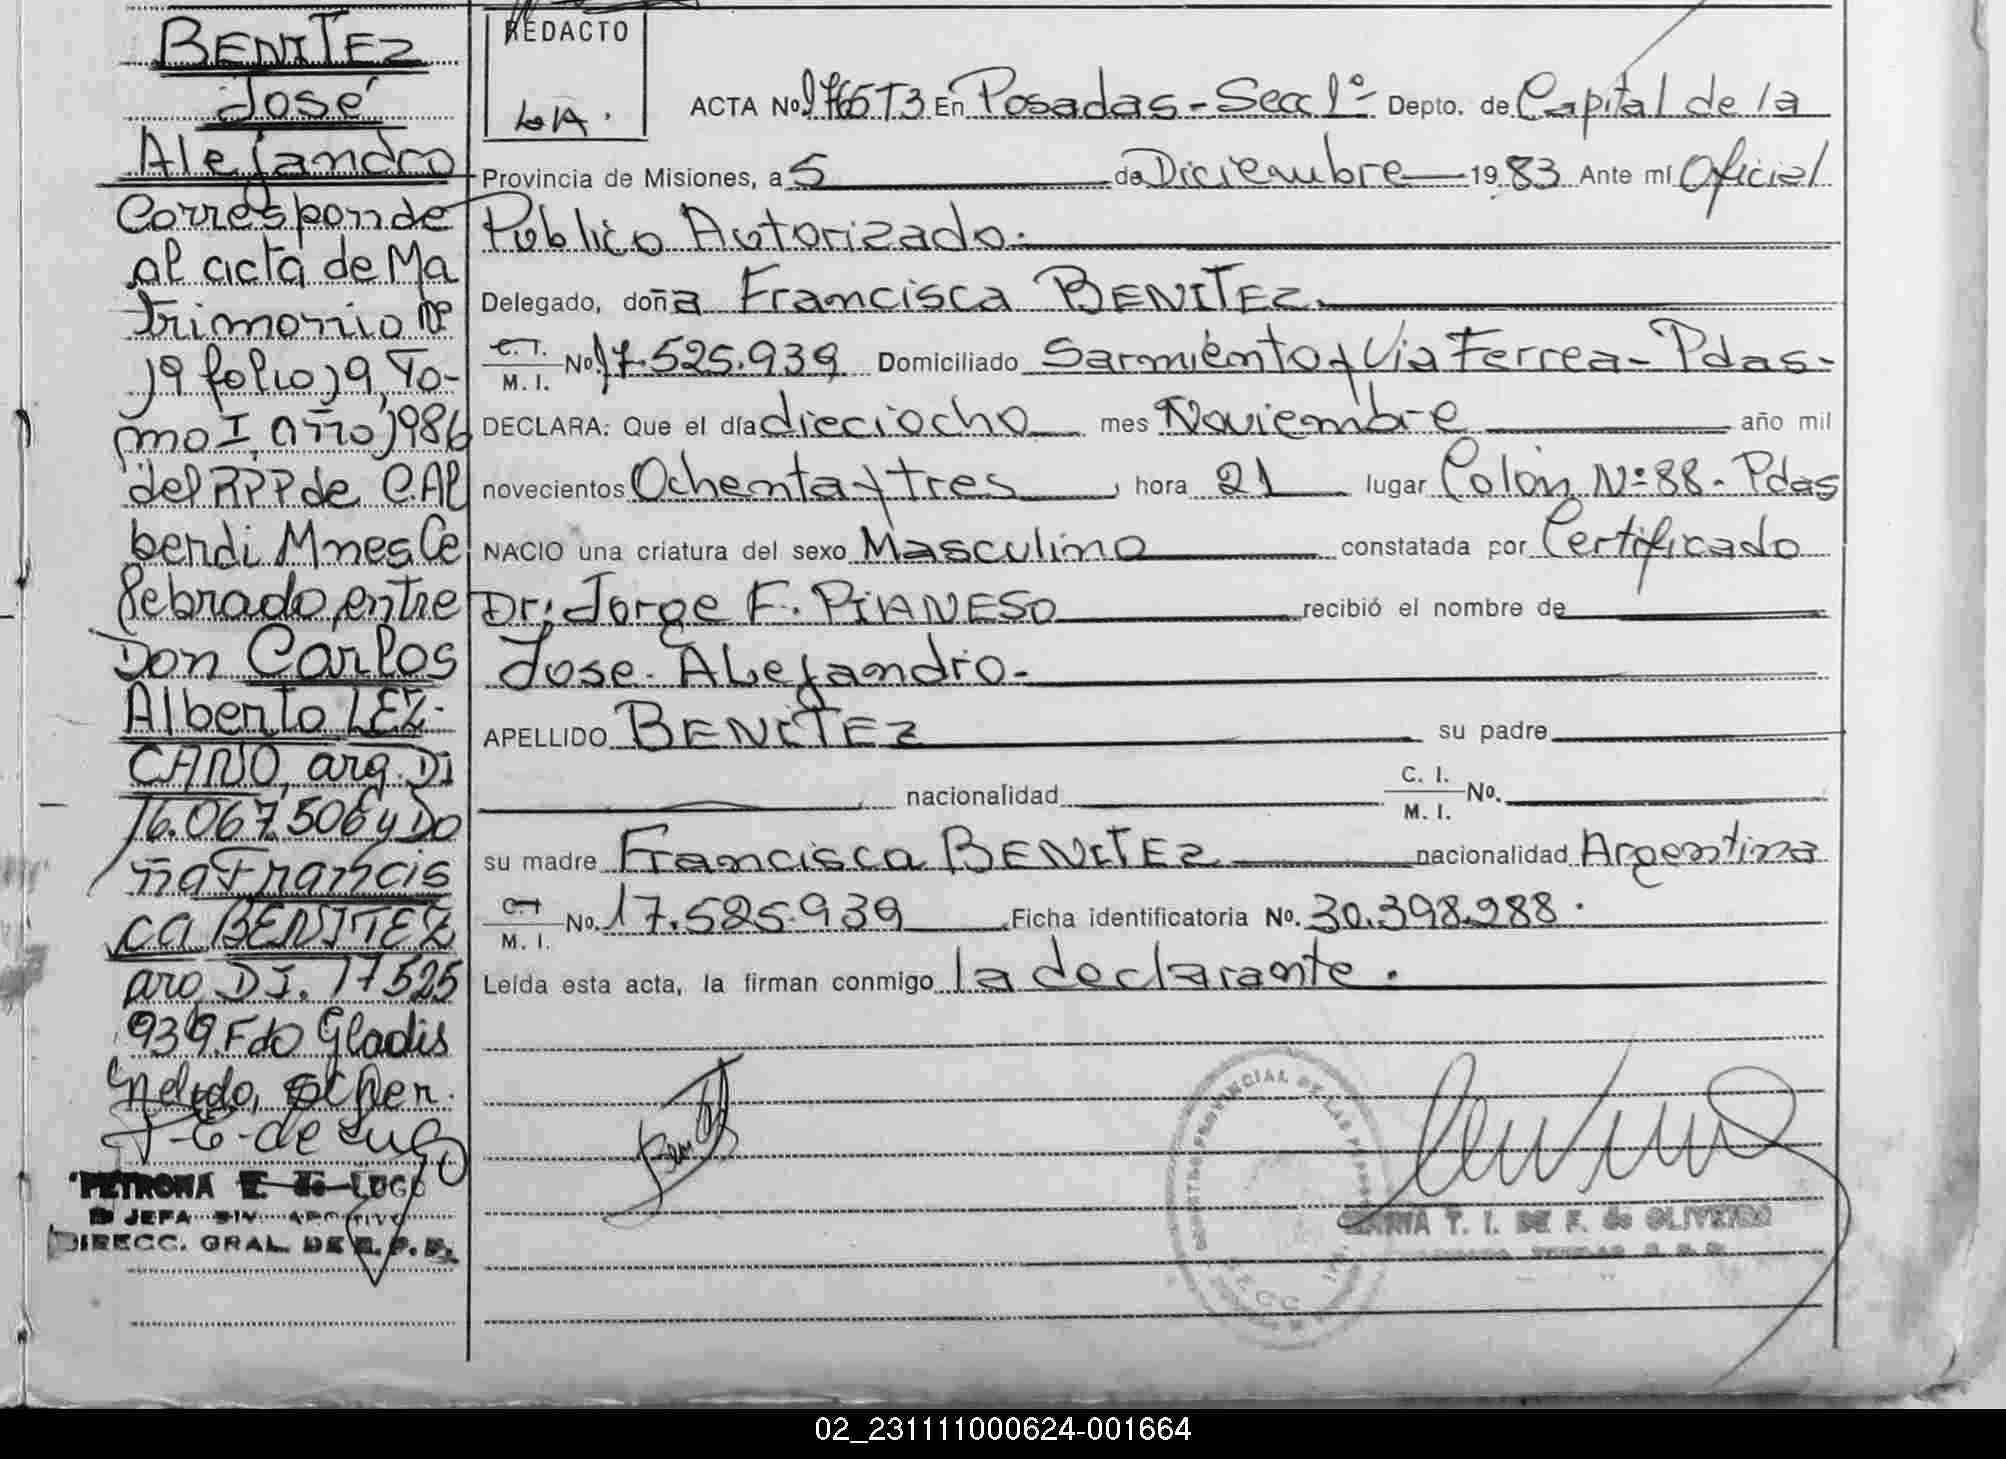 BENITEZ
José
Alejandro
Corresponde
al acta de Ma
trimonio Nº
19 folio 19 To-
mo I, año 1986
del RPP de C. Al
berdi Mnes Ce
lebrado, entre
Don Carlos
Alberto LEZ-
CANO, arg. DI
16.067.506 y Do
ña Francis
ca BENITEZ
arg. DI. 17525
939. Fdo Gladis
PETRONA E. de LUGO
JEFA DIV.
DIRECC. GRAL. DE R. P. P.
REDACTO
ACTA No. T3 En Posadas - Secc 1º - Depto. de Capital de la
Provincia de Misiones, a 5 de Diciembre 1983 Ante mí Oficial
Público Autorizado.
Delegado, doña Francisca BENITEZ.
C. I.
M. I. No. 17.525.939 Domiciliado Sarmiento y Via Ferrea - Pdas -
DECLARA: Que el día dieciocho mes Noviembre año mil
novecientos Ochenta y tres, hora 21 lugar Colón Nº 88 - Pdas
NACIO una criatura del sexo Masculino constatada por Certificado
Dr: Jorge F. PIANESO recibió el nombre de
Jose Alejandro.
APELLIDO BENITEZ su padre
nacionalidad C. I.
M. I. No.
su madre Francisca BENITEZ nacionalidad Argentina
C. I.
M. I. No. 17.525.939 Ficha identificatoria No. 30.398.288.
Leída esta acta, la firman conmigo la declarante.
MARIA T. I. DE F. de OLIVEIRO
02_231111000624-001664